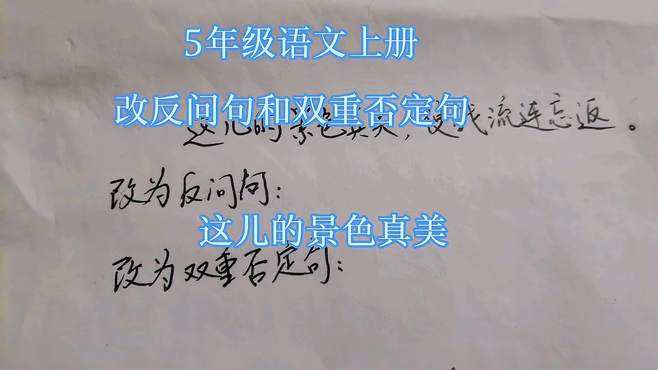 5年级语文上册
改反问句和双重否定句
这儿的景色真美，使我流连忘返。
改为反问句：
这儿的景色真美
改为双重否定句：